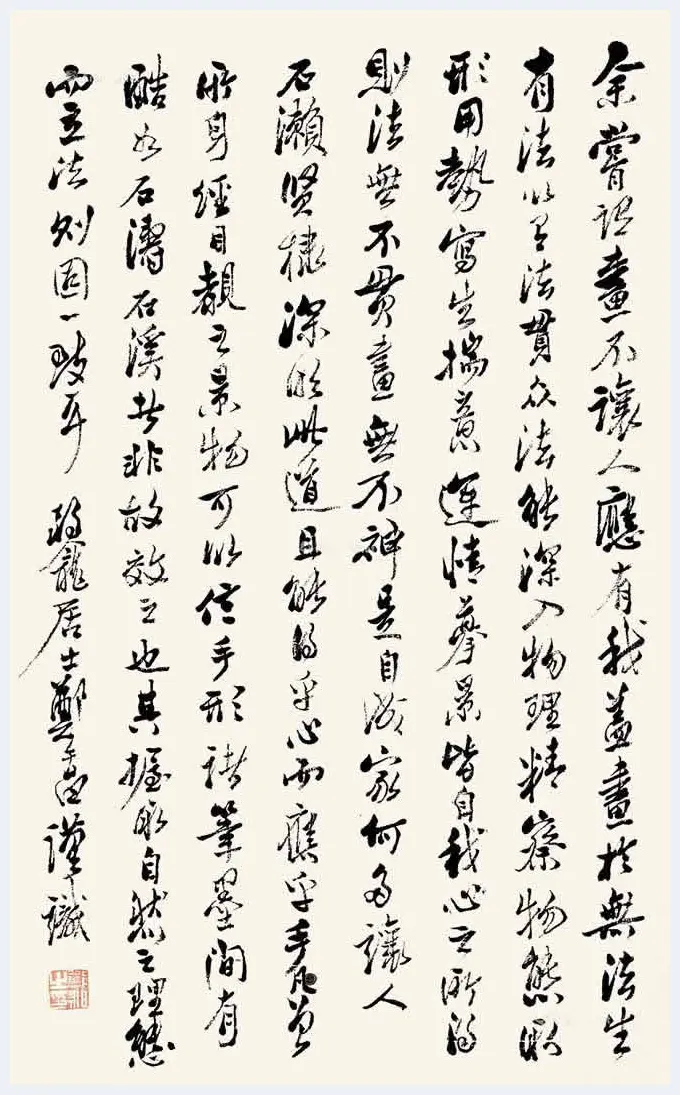 余嘗謂畫不讓人應有我蓋畫於無法生
有法以有法貫众法能深入物理精察物態取
形用勢寫生揣意運情摹景皆自我心之所得
則法無不貫畫無不神是自成家何多讓人
石瀬賢棣深於此道且能得乎心而應乎手凡曾
所身經目覩之景物可以信手形諸筆墨間有
酷如石濤石溪者非故效之也其握取自然之理態
而立法則固一致耳 弱龕居士鄭午昌謹識